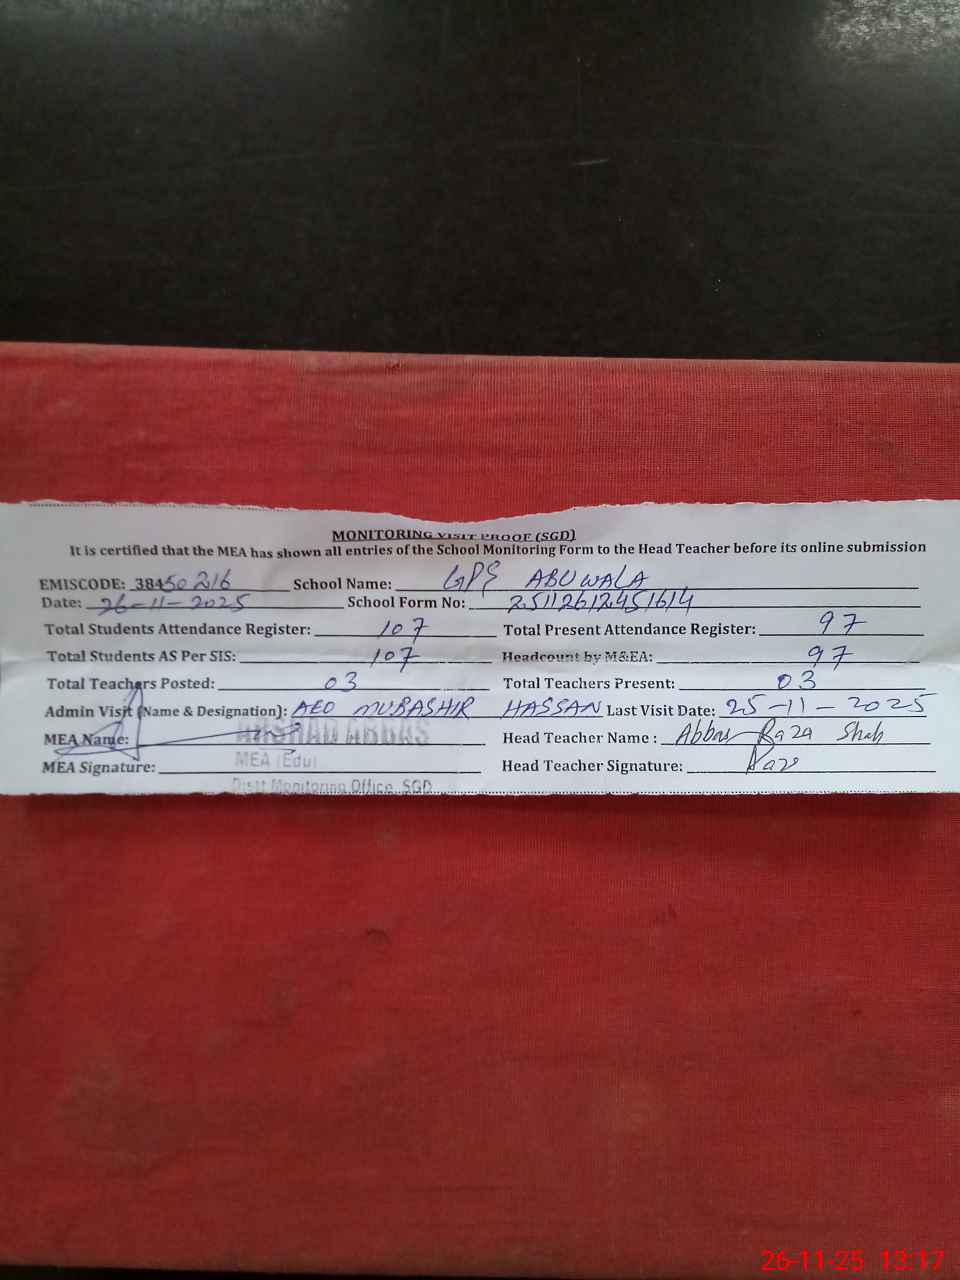 MONITORING VISIT PROOF (SGD)
It is certified that the MEA has shown all entries of the School Monitoring Form to the Head Teacher before its online submission
EMISCODE: 38450216 School Name: GPS ABUWALA
Date: 26-11-2025 School Form No: 2511261245164
Total Students Attendance Register: 107 Total Present Attendance Register: 97
Total Students AS Per SIS: 107 Headcount by M&EA: 97
Total Teachers Posted: 03 Total Teachers Present: 03
Admin Visit (Name & Designation): AEO MUBASHIR HASSAN Last Visit Date: 25-11-2025
MEA Name: ABBAS Head Teacher Name : Abbas Raza Shah
MEA Signature: MEA (Edu) Head Teacher Signature: Raza
Distt Monitoring Office, SGD
26-11-25 13:17